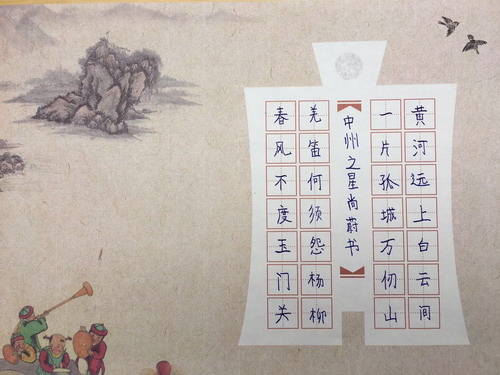 黄河远上白云间
一片孤城万仞山
中州之星尚蔚书
羌笛何须怨杨柳
春风不度玉门关